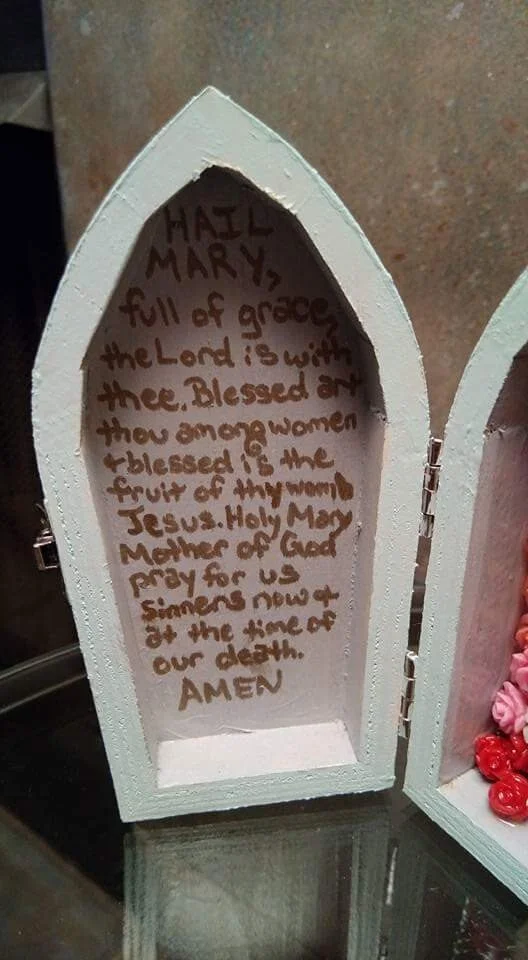 HAIL
MARY,
full of grace,
the Lord is with
thee. Blessed art
thou among women
+ blessed is the
fruit of thy womb
Jesus. Holy Mary
Mother of God
pray for us
sinners now +
at the time of
our death.
AMEN